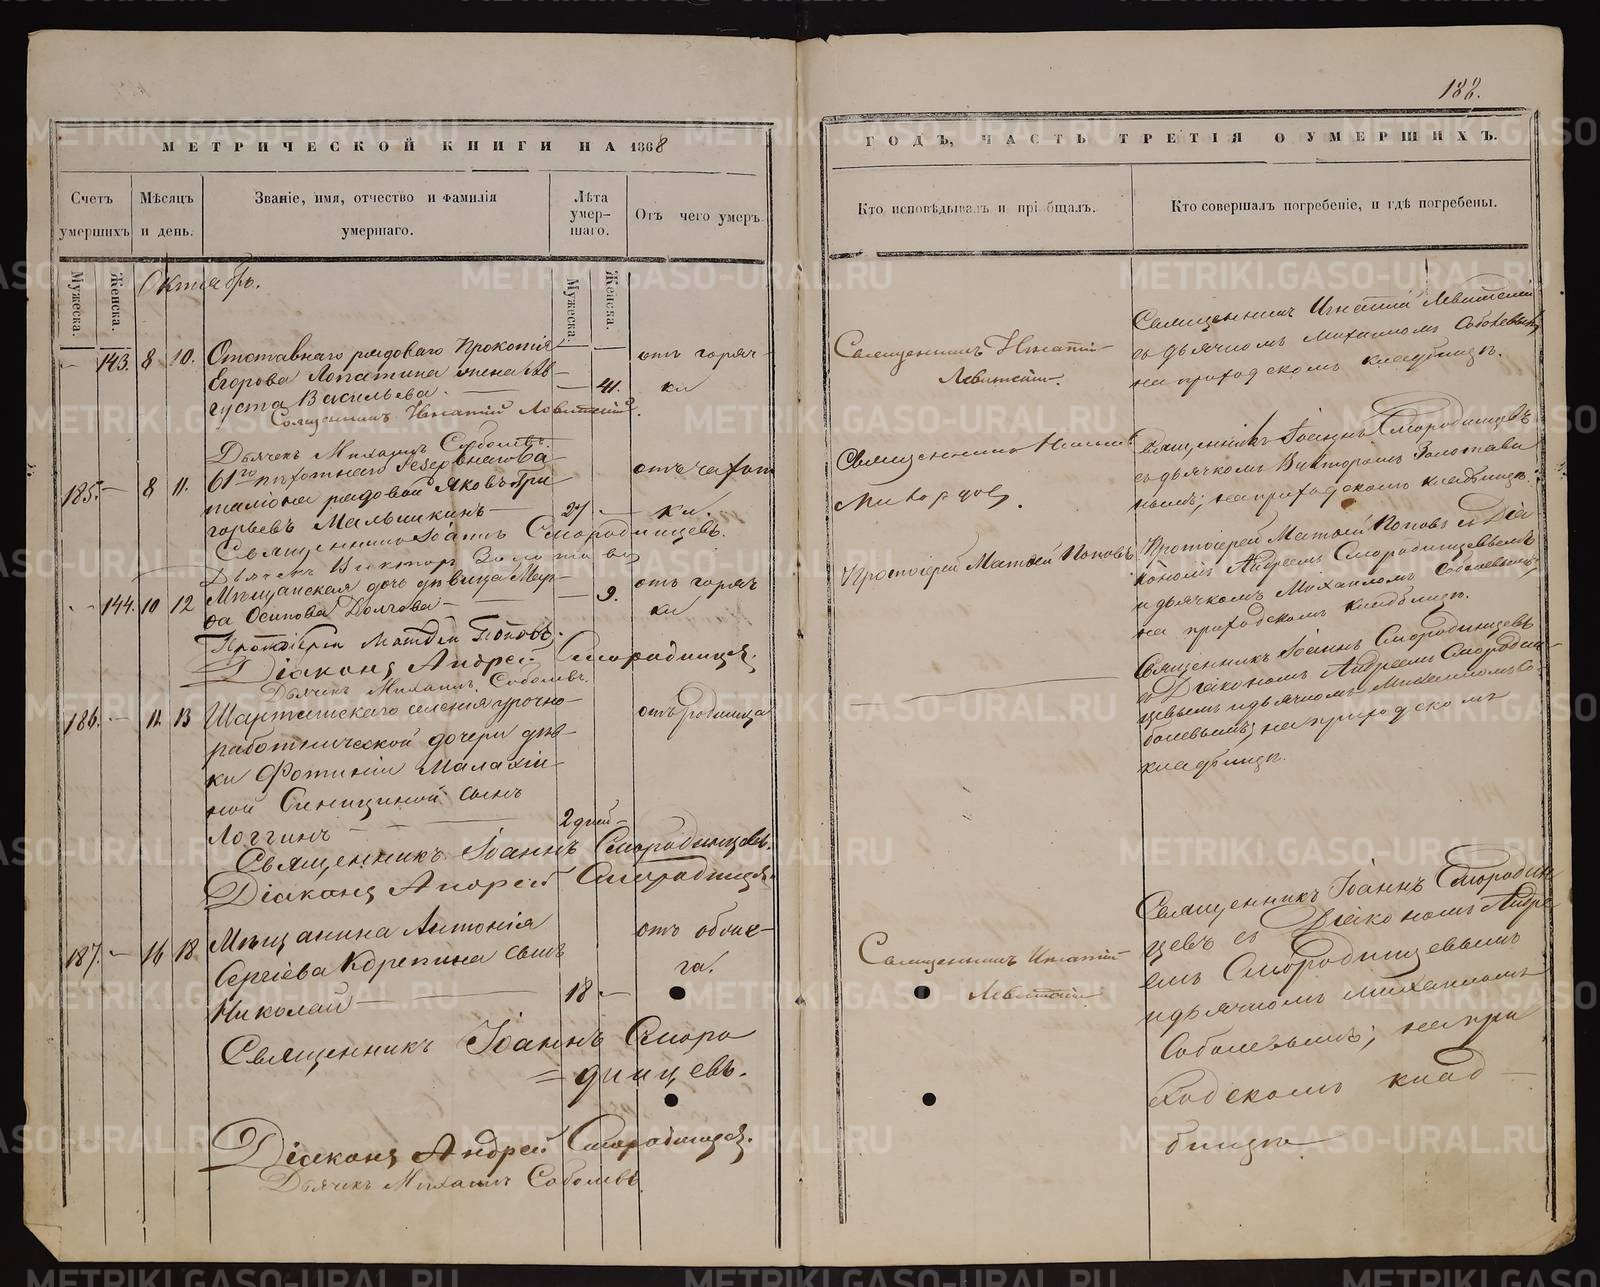 188.
МЕТРИЧЕСКОЙ КНИГИ НА 1868
ГОДЪ, ЧАСТЬ ТРЕТІЯ О УМЕРШИХЪ.
Счетъ умершихъ.
Мѣсяцъ и день.
Званіе, имя, отчество и фамилія умершаго.
Лѣта умер-
шаго.
Отъ чего умеръ.
Кто исповѣдывалъ и пріобщалъ.
Кто совершалъ погребеніе, и гдѣ погребены.
Мужеска.
Женска.
Мужеска.
Женска.
Октябрь.
— 143. 8 10. Отставнаго рядоваго Прокопія
Егорова Лопатина жена Ав-
густа Васильева.
— 41.
отъ горяч-
ки
Священникъ Игнатій
Левитскій.
Священникъ Игнатій Левитскій
съ дьячкомъ Михаиломъ Соболевымъ
на приходскомъ кладбищѣ.
Священникъ Игнатій Левитскій.
Дьячекъ Михаилъ Соболевъ.
185. — 8 11. 61го пѣхотнаго Резервнаго Ба-
таліона рядовой Яковъ Гри
горьевъ Мальшкинъ
27 —
отъ чахот
ки.
Священникъ
Священникъ Іоаннъ Смородинцевъ
съ дьячкомъ Викторомъ Золотави
нымъ; на приходскомъ кладбищѣ.
Священникъ Іоаннъ Смородинцевъ.
Дьячекъ Викторъ
— 144. 10 12 Мѣщанская дочь дѣвица Мар-
ѳа Осипова Долгова
— 9.
отъ горяч
ки
Протоіерей Матѳей Поповъ
Протоіерей Матѳей Поповъ съ Діа
кономъ Андреемъ Смородинцевымъ
и дьячкомъ Михаиломъ Соболевымъ;
на приходскомъ кладбищѣ.
Протоіерей Матѳей Поповъ.
Діаконъ Андрей Смородинцевъ.
Дьячекъ Михаилъ Соболевъ.
186. — 11. 13 Шарташскаго селенія урочно-
работнической дочери дѣв-
ки Фотиніи Малахіи-
ной Синициной сынъ
Логгинъ
2 дней —
отъ родимца
Священникъ Іоаннъ Смородинцевъ
съ Діакономъ Андреемъ Смородин-
цевымъ и дьячкомъ Михаиломъ Со-
болевымъ; на приходскомъ
кладбищѣ.
Священникъ Іоаннъ Смородинцевъ.
Діаконъ Андрей Смородинцевъ.
187. — 16 18 Мѣщанина Антонія
Сергіева Кдрепина сынъ
Николай
18 —
Священникъ Игнатій
Левитскій.
Священникъ Іоаннъ Смородин
цевъ съ Діакономъ Андре-
емъ Смородинцевымъ
и дьячкомъ Михаиломъ
Соболевымъ; на при
ходскомъ клад-
бищѣ
Священникъ Іоаннъ Сморо
= динцевъ.
Діаконъ Андрей Смородинцевъ.
Дьячекъ Михаилъ Соболевъ
METRIKI.GASO-URAL.RU